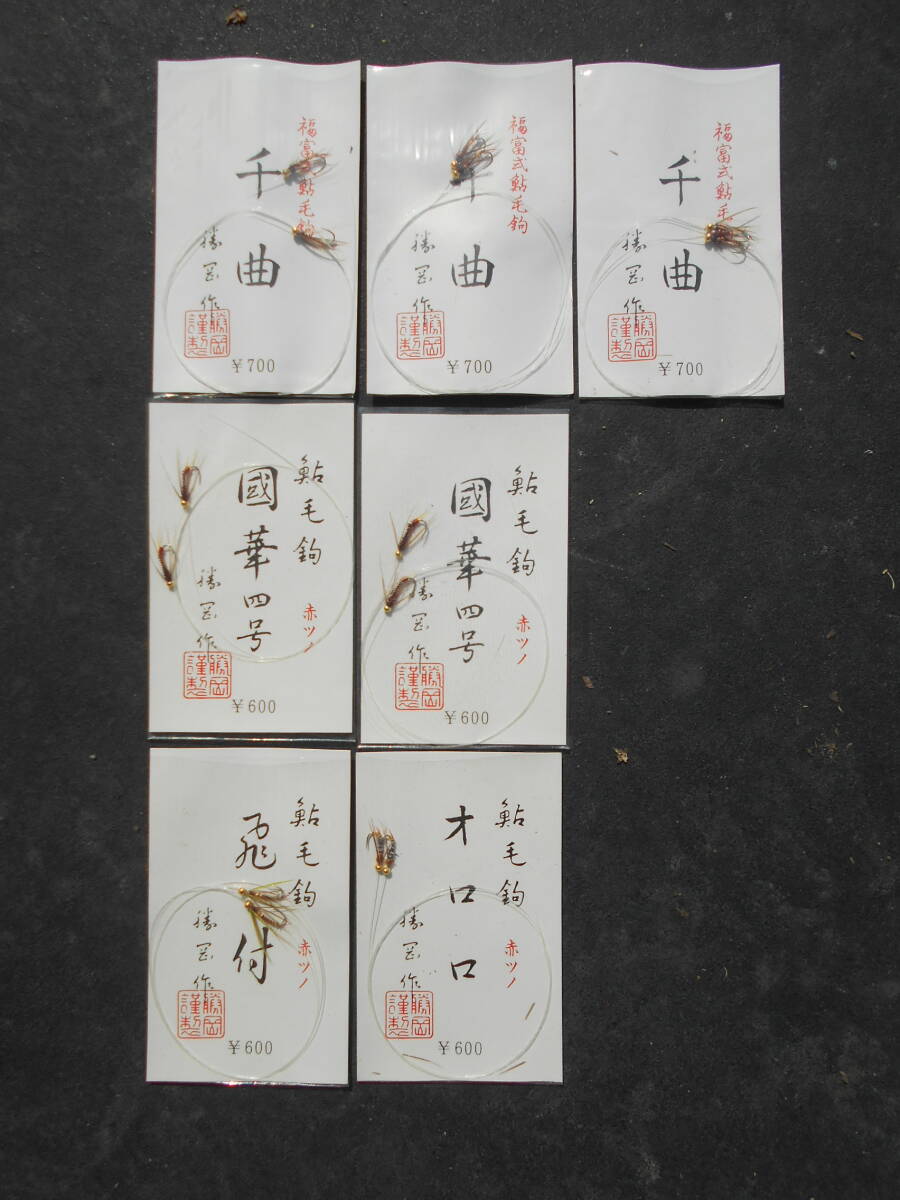 福富式鮎毛鉤
千曲
勝岡作
勝岡謹製
￥700
福富式鮎毛鉤
千曲
勝岡作
勝岡謹製
￥700
福富式鮎毛
千曲
勝岡作
勝岡謹製
￥700
鮎毛鉤
赤ツノ
國華四号
勝岡作
勝岡謹製
￥600
鮎毛鉤
赤ツノ
國華四号
勝岡作
勝岡謹製
￥600
鮎毛鉤
赤ツノ
飛付
勝岡作
勝岡謹製
￥600
鮎毛鉤
赤ツノ
オロロ
勝岡作
勝岡謹製
￥600